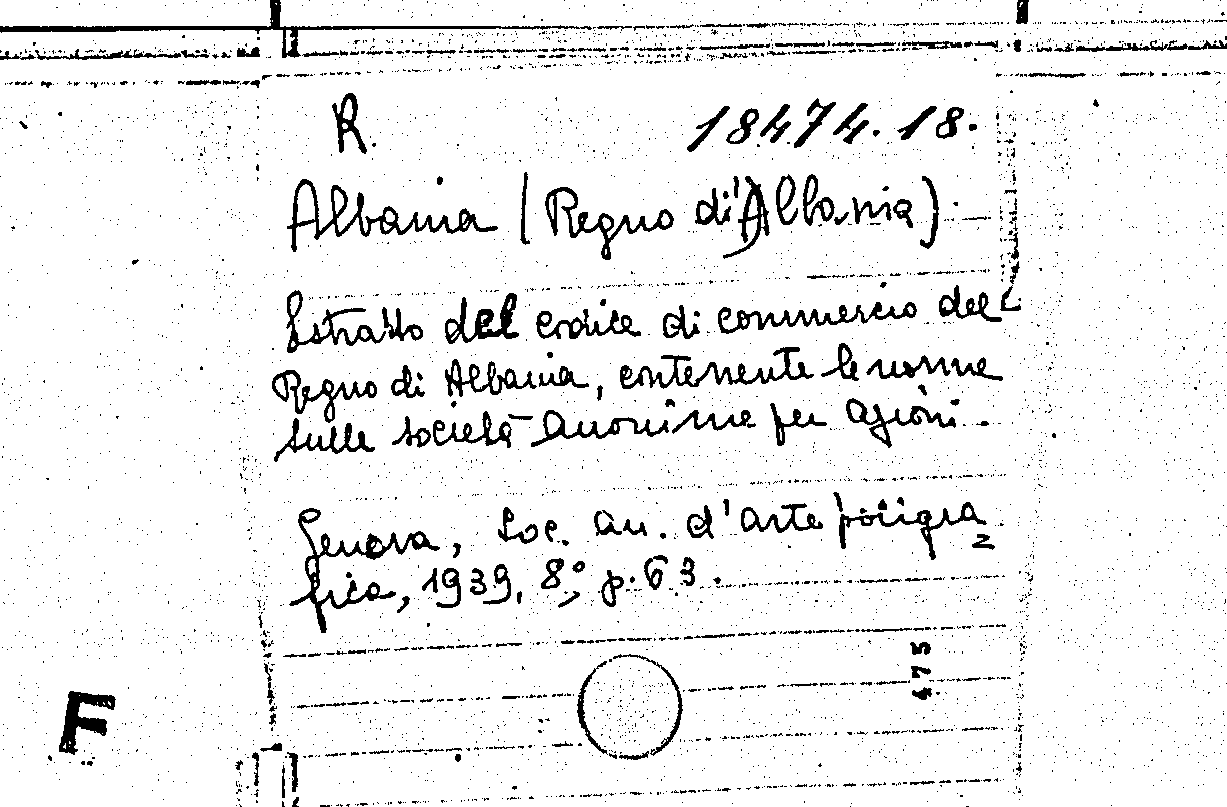 R. 18474.18.
Albania (Regno di Albania).
Estratto del codice di commercio del
Regno di Albania, contenente le norme
sulle società anonime per azioni.
Genova, Soc. an. d'arte poligra
fica, 1939, 8°, p. 63.
475
F